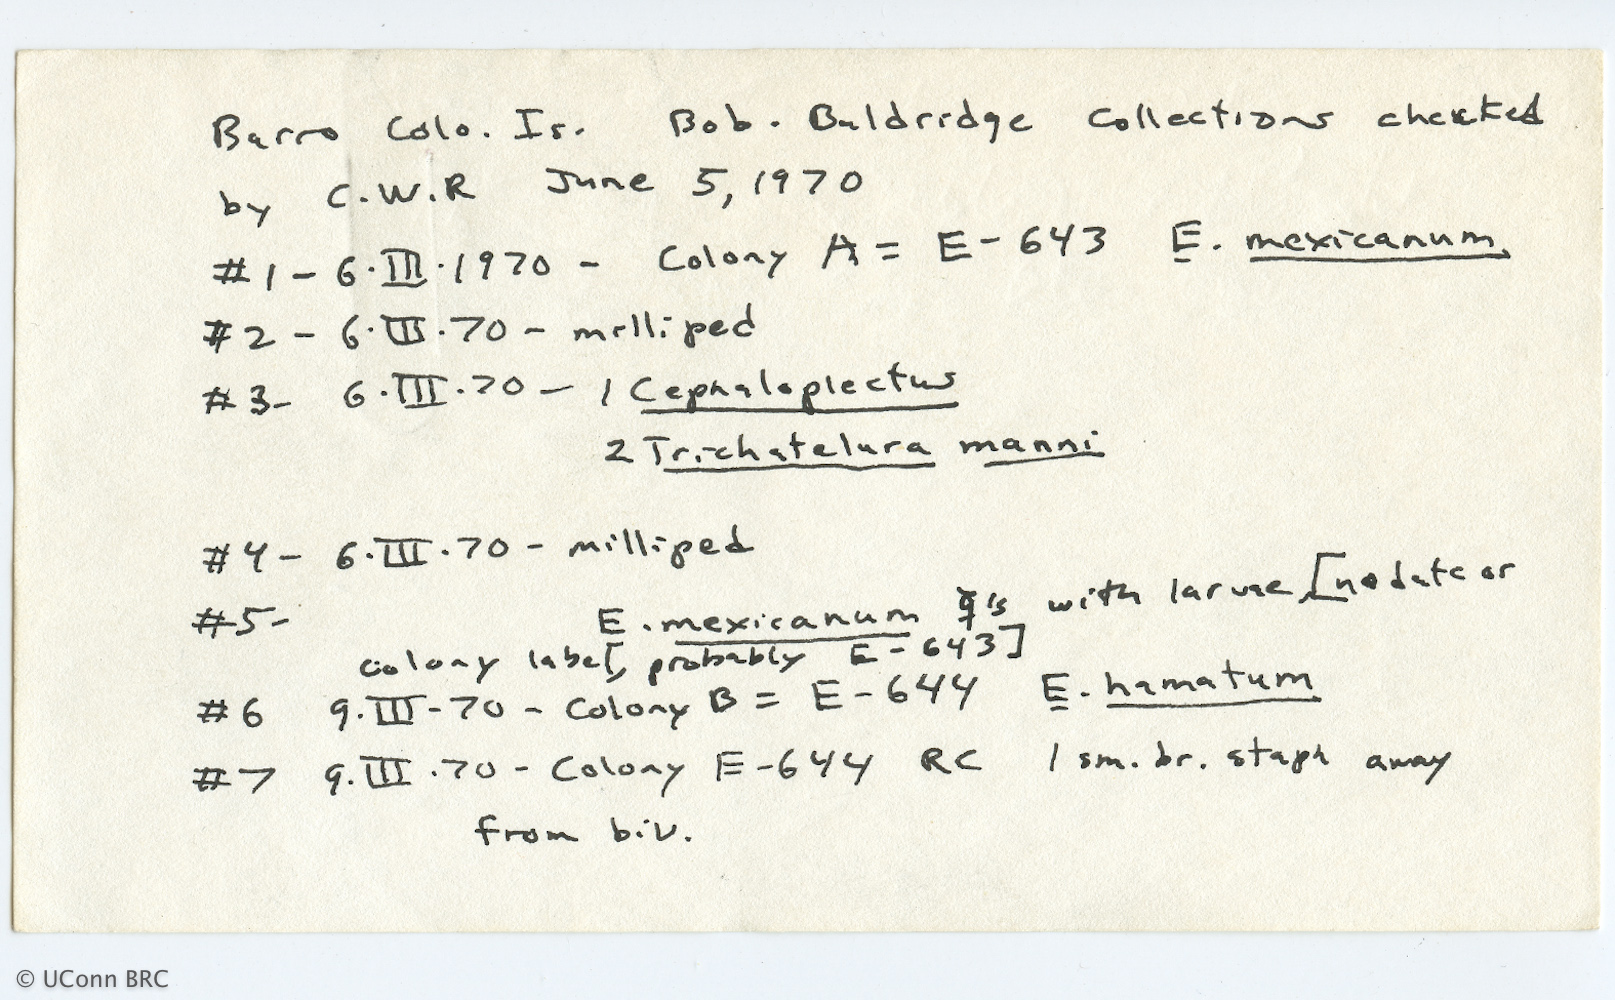 Barro Colo. Is. Bob. Baldridge Collections checked
by C.W.R June 5, 1970
#1 - 6.III.1970 - Colony A = E-643 E. mexicanum.
#2 - 6.III.70 - milliped
#3- 6.III.70 - 1 Cephaloplectus
2 Trichatelura manni
#4 - 6.III.70 - milliped
#5- E. mexicanum ☿'s with larvae, [no date or
colony label, probably E-643]
#6 9.III-70 - Colony B = E-644 E. hamatum
#7 9.III.70 - Colony E-644 RC 1 sm. br. staph away
from biv.
© UConn BRC